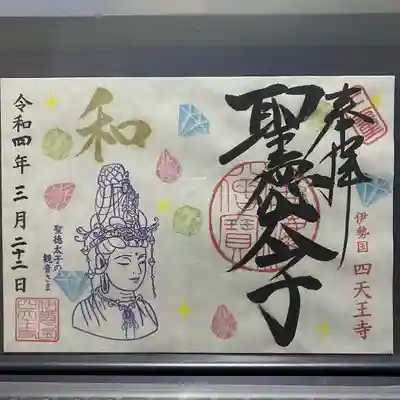 奉拝
聖徳太子
伊勢国 四天王寺
和
聖徳太子の
観音さま
令和四年 三月 二十二日